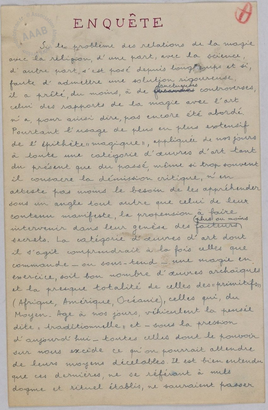 ENQUÊTE
Si le problème des relations de la magie
avec la religion, d'une part, avec la science,
d'autre part, s'est posé depuis longtemps et si,
faute d'admettre une solution rigoureuse,
il a prêté, du moins, à de fructueuses controverses,
celui des rapports de la magie avec l'art
n'a, pour ainsi dire, pas encore été abordé.
Pourtant l'usage de plus en plus extensif
de l'épithète "magique", appliquée de nos jours
à toute une catégorie d'œuvres d'art tant
du présent que du passé, même si trop souvent
il consacre la démission critique, n'en
atteste pas moins le besoin de les appréhender
sous un angle tout autre que celui de leur
contenu manifeste, la propension à faire
intervenir dans leur genèse des facteurs plus ou moins
secrets. La catégorie d'œuvres d'art dont
il s'agit comprendrait à la fois celles que
commande - ou sous-tend - une magie en
exercice, soit bon nombre d'œuvres archaïques
et la presque totalité de celles des "primitifs"
(Afrique, Amérique, Océanie), celles qui, du
Moyen-Age à nos jours, véhiculent la pensée
dite "traditionnelle", et - sous la pression
d'aujourd'hui - toutes celles dont le pouvoir
sur nous excède ce qu'on pourrait attendre
de leurs moyens décelables. Il est bien entendu
que ces dernières, ne se référant à nuls
dogme et rituel établis, ne sauraient passer